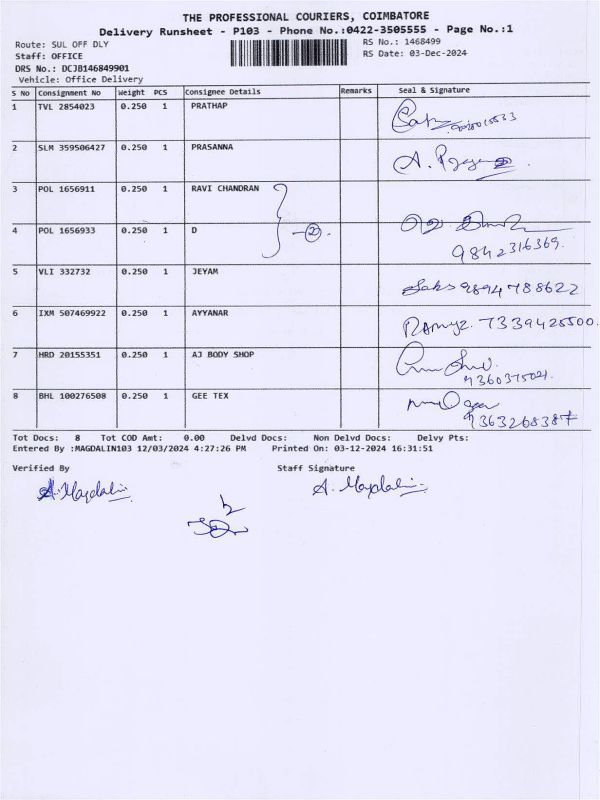 THE PROFESSIONAL COURIERS, COIMBATORE
Delivery Runsheet - P103 - Phone No.:0422-3505555 - Page No.:1
Route: SUL OFF DLY
RS No.: 1468499
Staff: OFFICE
RS Date: 03-Dec-2024
DRS No.: DCJB146849901
Vehicle: Office Delivery
S No Consignment No Weight PCS Consignee Details Remarks Seal & Signature
1 TVL 2854023 0.250 1 PRATHAP
2 SLM 359506427 0.250 1 PRASANNA
3 POL 1656911 0.250 1 RAVI CHANDRAN
4 POL 1656933 0.250 1 D -②.
9842316369.
5 VLI 332732 0.250 1 JEYAM 9894788622
6 IXM 507469922 0.250 1 AYYANAR 7339425500.
7 HRD 20155351 0.250 1 AJ BODY SHOP
8 BHL 100276508 0.250 1 GEE TEX
9363268387
Tot Docs: 8 Tot COD Amt: 0.00 Delvd Docs: Non Delvd Docs: Delvy Pts:
Entered By :MAGDALIN103 12/03/2024 4:27:26 PM Printed On: 03-12-2024 16:31:51
Verified By Staff Signature
A. Magdalin A. Magdalin